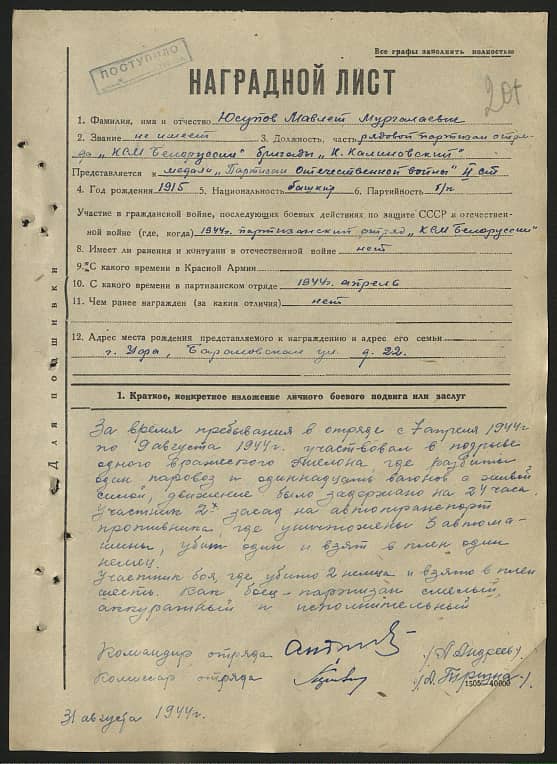 Все графы заполнять полностью
ПОСТУПИЛО
НАГРАДНОЙ ЛИСТ
1. Фамилия, имя и отчество Юсупов Мавлет Мургалаевич
2. Звание не имеет 3. Должность, часть рядовой партизан отря-
да „КИМ Белоруссии" бригады „К. Калиновский"
Представляется к медали „Партизан Отечественной войны" II ст
4. Год рождения 1915 5. Национальность башкир 6. Партийность б/п
Участие в гражданской войне, последующих боевых действиях по защите СССР и отечествен-
ной войне (где, когда) 1944г. партизанский отряд „КИМ Белоруссии"
8. Имеет ли ранения и контузии в отечественной войне нет
9. С какого времени в Красной Армии
10. С какого времени в партизанском отряде 1944г. апрель
11. Чем ранее награжден (за какие отличия) нет
12. Адрес места рождения представляемого к награждению и адрес его семьи
г. Уфа, ул. д. 22.
Для подшивки
1. Краткое, конкретное изложение личного боевого подвига или заслуг
За время пребывания в отряде с 7 апреля 1944г
по 9 августа 1944г. участвовал в подрыве
одного вражеского эшелона, где разбиты
один паровоз и одиннадцать вагонов с живой
силой, движение было задержано на 24 часа.
Участник 2х засад на автотранспорт
противника, где уничтожены 3 автома-
шины, убит один и взят в плен один
немец.
Участник боя, где убито 2 немца и взято в плен
шесть. Как боец-партизан смелый,
аккуратный и исполнительный
Командир отряда /А. Андреев/
Комиссар отряда
1505—40000
31 августа 1944г.